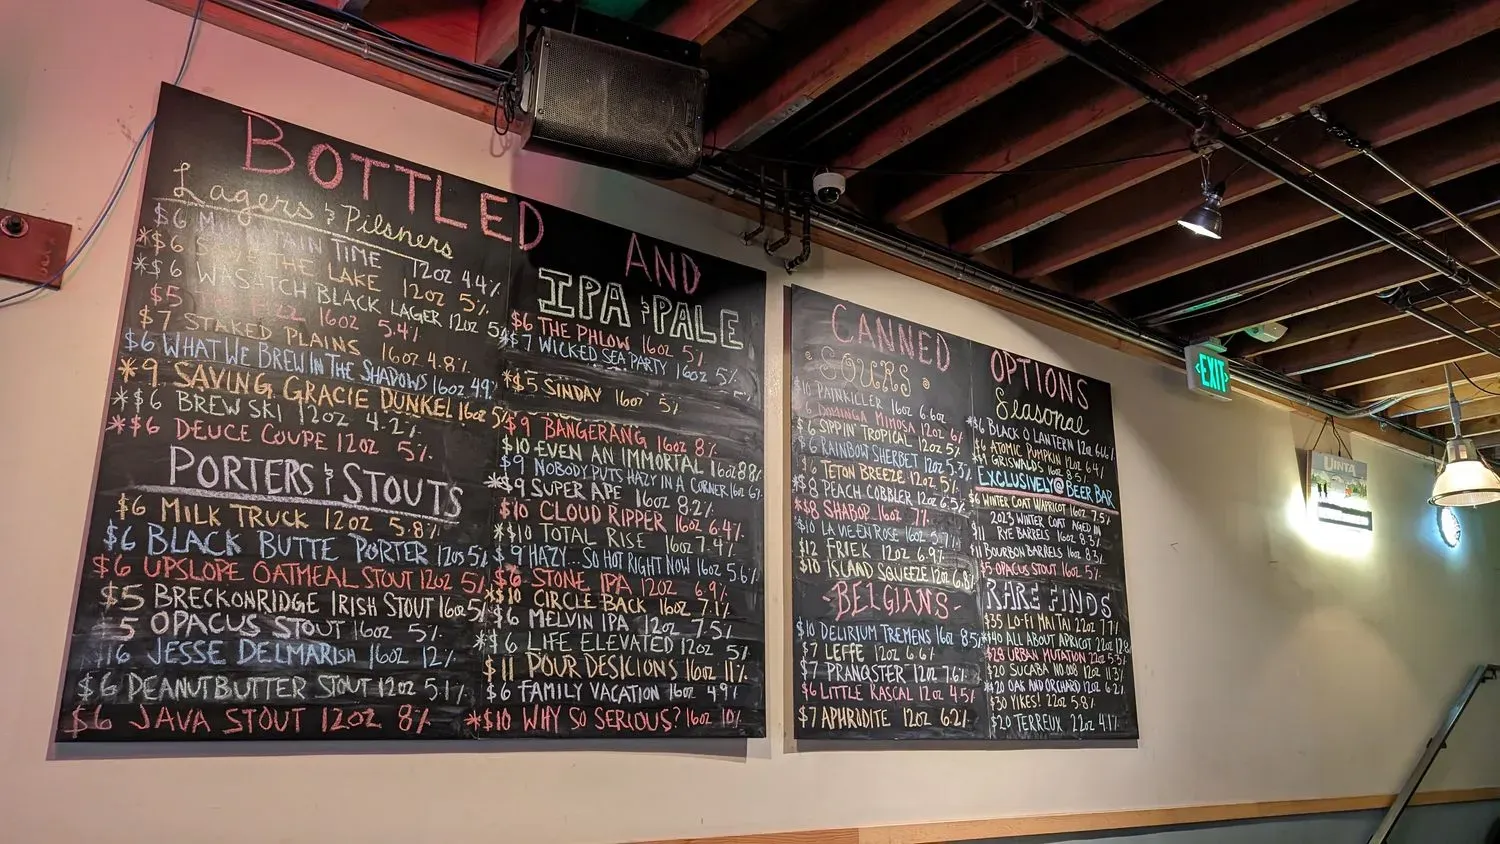 BOTTLED AND
Lagers & Pilsners
$6 MOUNTAIN TIME 12oz 4.4%
*$6 THE LAKE 12oz 5%
*$6 WASATCH BLACK LAGER 12oz 5%
$5 16oz 5.4%
$7 STAKED PLAINS 16oz 4.8%
$6 WHAT WE BREW IN THE SHADOWS 16oz 4.9%
*9 SAVING GRACIE DUNKEL 16oz 5%
*$6 BREW SKI 12oz 4.2%
*$6 DEUCE COUPE 12oz 5%
PORTERS & STOUTS
$6 MILK TRUCK 12oz 5.8%
$6 BLACK BUTTE PORTER 12oz 5%
$6 UPSLOPE OATMEAL STOUT 12oz 5%
$5 BRECKONRIDGE IRISH STOUT 16oz 5%
$5 OPACUS STOUT 16oz 5%
$16 JESSE DELMARISH 16oz 12%
$6 PEANUTBUTTER STOUT 12oz 5.1%
$6 JAVA STOUT 12oz 8%
IPA & PALE
$6 THE PHLOW 16oz 5%
*$7 WICKED SEA PARTY 16oz 5%
*$5 SINDAY 16oz 5%
$9 BANGERANG 16oz 8%
$10 EVEN AN IMMORTAL 16oz 8.8%
$9 NOBODY PUTS HAZY IN A CORNER 16oz 6%
*$9 SUPER APE 16oz 8.2%
$10 CLOUD RIPPER 16oz 6.4%
*$10 TOTAL RISE 16oz 7.4%
$9 HAZY...SO HOT RIGHT NOW 16oz 5.6%
$6 STONE IPA 12oz 6.9%
*$10 CIRCLE BACK 16oz 7.1%
$6 MELVIN IPA 12oz 7.5%
*$6 LIFE ELEVATED 12oz 5%
$11 POUR DESICIONS 16oz 11%
$6 FAMILY VACATION 16oz 4.9%
*$10 WHY SO SERIOUS? 16oz 10%
CANNED OPTIONS
SOURS
$10 PAINKILLER 16oz 6.6%
$6 MIMOSA 12oz 6%
$6 SIPPIN' TROPICAL 12oz 5%
$6 RAINBOW SHERBET 12oz 5.3%
$6 TETON BREEZE 12oz 5%
*$8 PEACH COBBLER 12oz 6.5%
*$8 SHABOP 16oz 7%
$10 LA VIE EN ROSE 16oz 5.7%
$12 FRIEK 12oz 6.9%
$10 ISLAND SQUEEZE 12oz 6.8%
-BELGIANS-
$10 DELIRIUM TREMENS 16oz 8.5%
$7 LEFFE 12oz 6.6%
$7 PRANQSTER 12oz 7.6%
$6 LITTLE RASCAL 12oz 4.5%
$7 APHRODITE 12oz 6.2%
Seasonal
*$6 BLACK O LANTERN 12oz 6.6%
$6 ATOMIC PUMPKIN 12oz 6.4%
GRISWOLD'S 16oz 8.5%
EXCLUSIVELY @ BEER BAR
$6 WINTER COAT W/APRICOT 16oz 7.5%
2023 WINTER COAT AGED IN
$11 RYE BARRELS 16oz 8.3%
$11 BOURBON BARRELS 16oz 8.2%
$5 OPACUS STOUT 16oz 5%
RARE FINDS
$35 LO-FI MAI TAI 22oz 7.7%
*$40 ALL ABOUT APRICOT 22oz 12.8%
$28 URBAN MUTATION 22oz 5.3%
$20 SUCABA NO.008 12oz 11.3%
*$20 OAK AND ORCHARD 12oz 6.2%
$30 YIKES! 22oz 5.8%
$20 TERREUX 22oz 4.1%
EXIT
UINTA